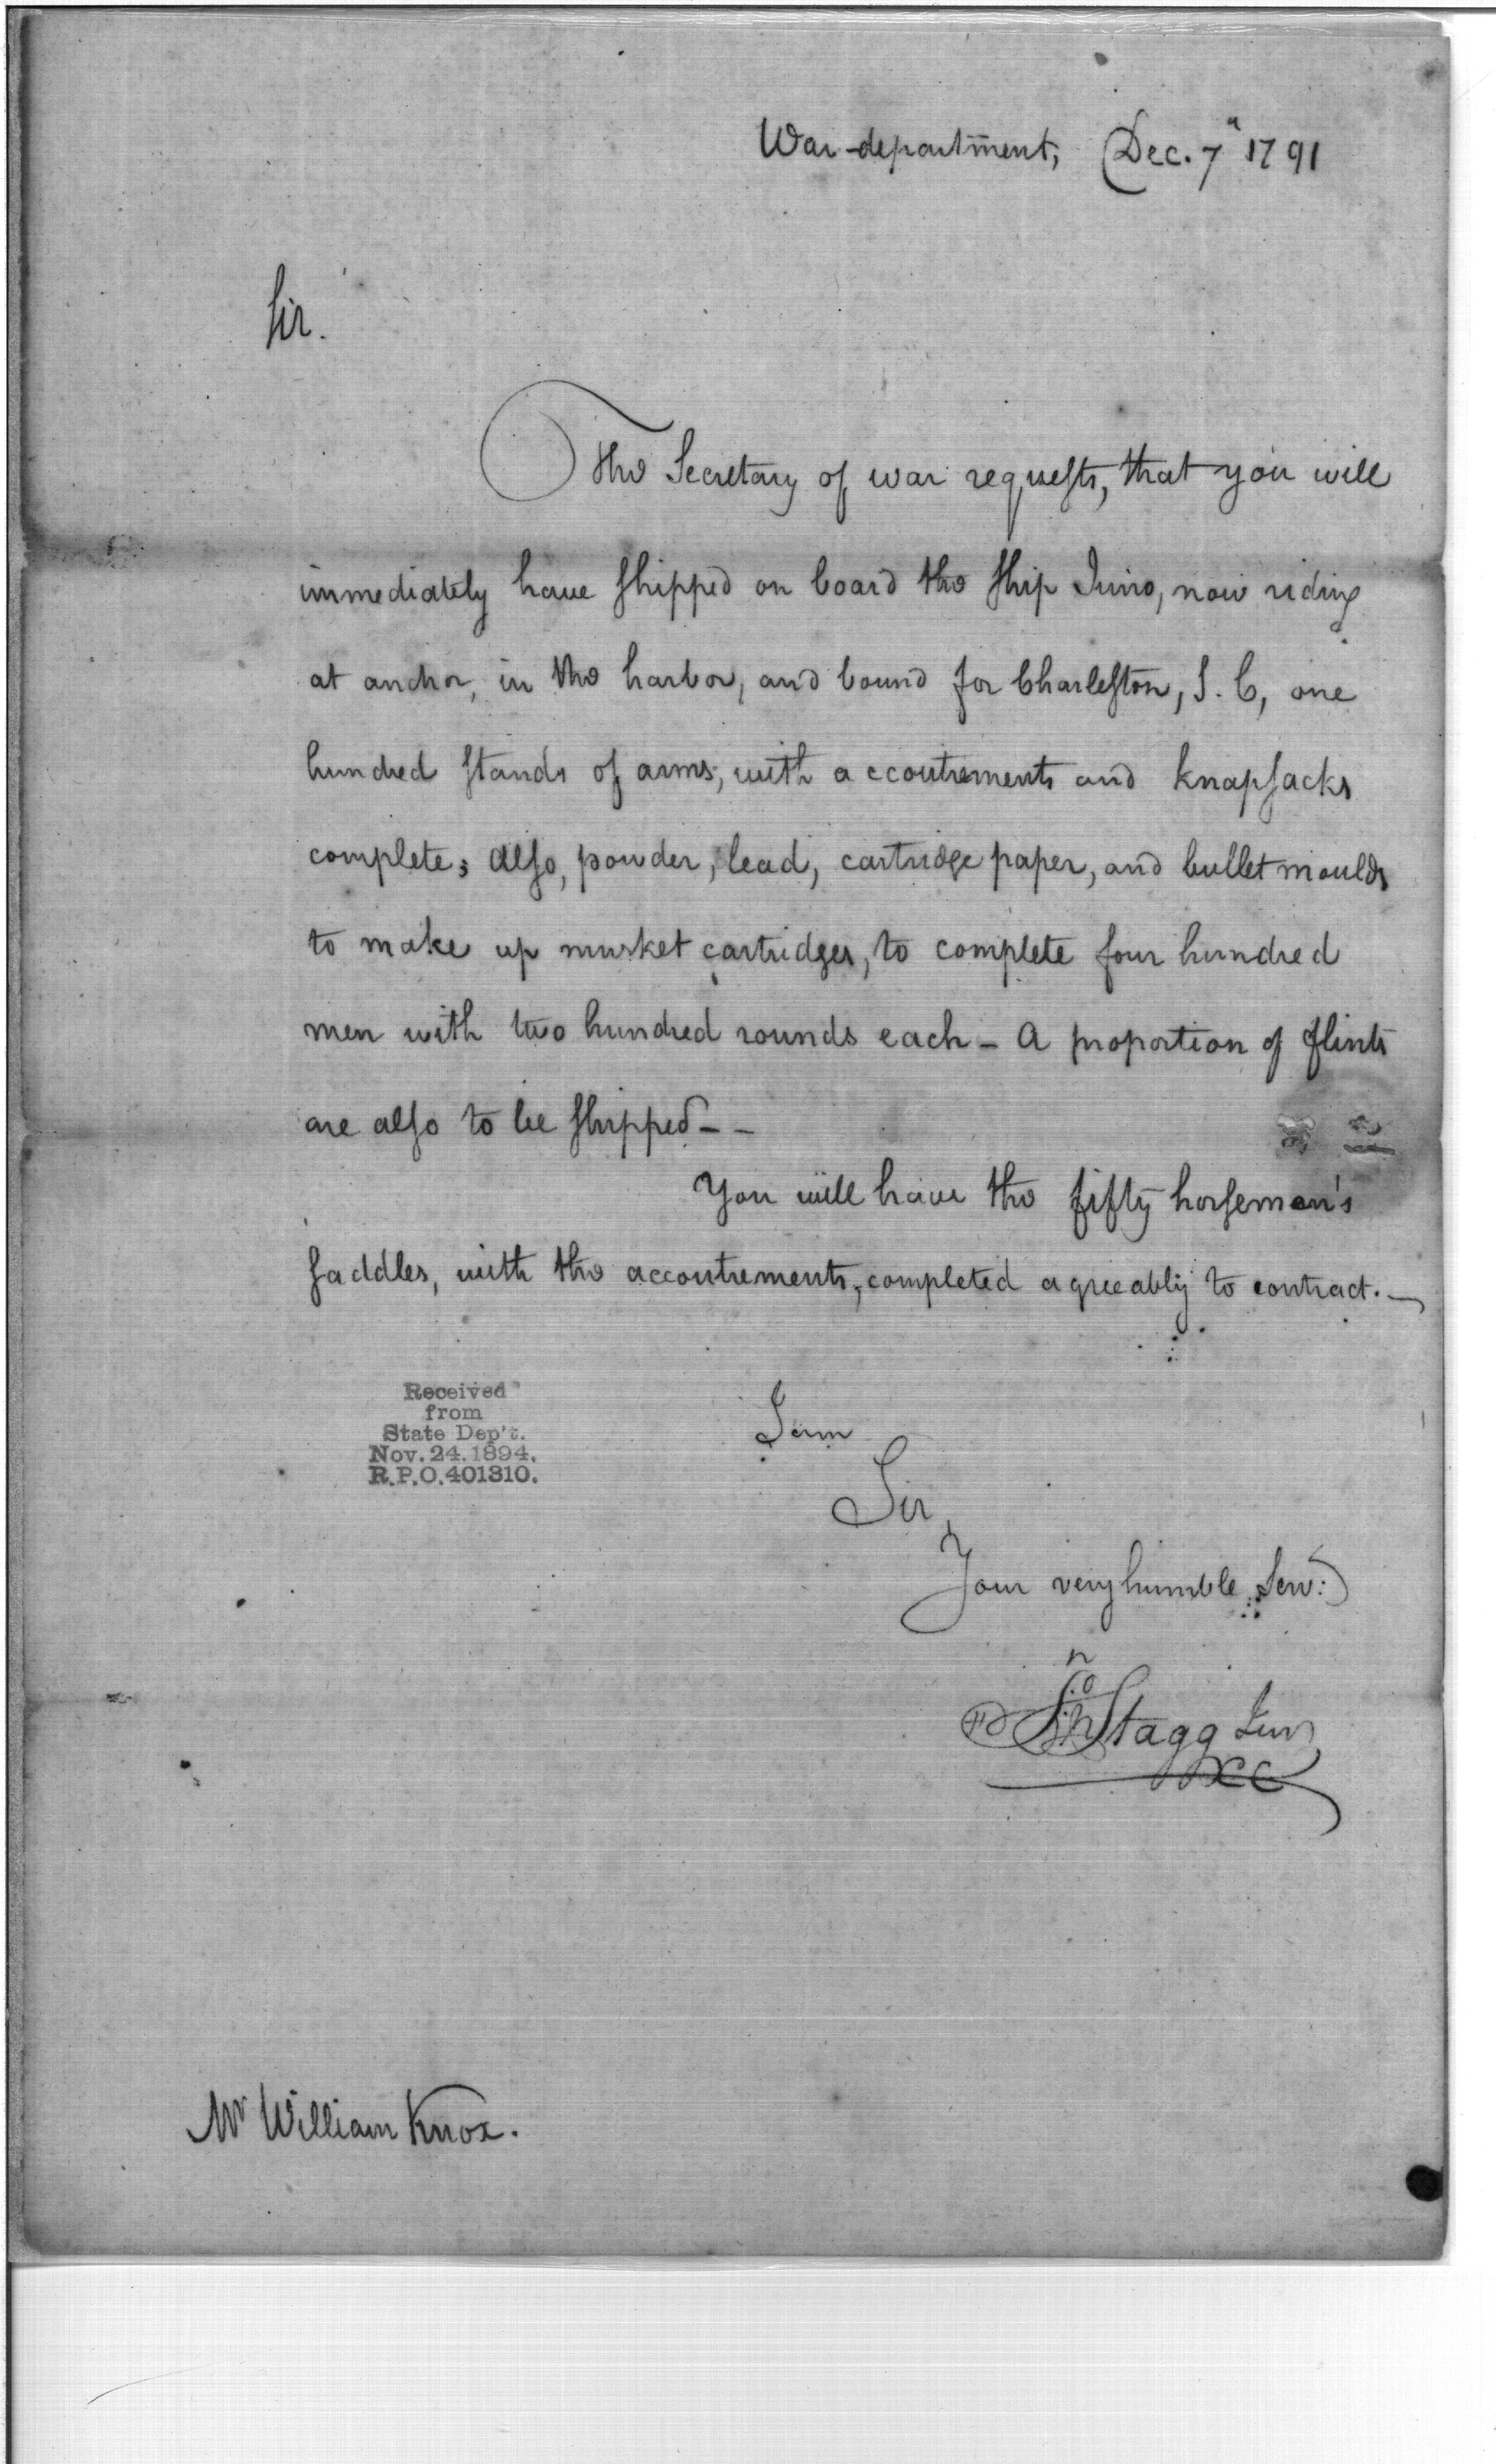 War-department, Dec. 7th 1791
Sir.
The Secretary of war requests, that you will
immediately have shipped on board the ship Juno, now riding
at anchor, in the harbor, and bound for Charleston, S. C, one
hundred stands of arms, with accoutrements and knapsacks
complete; also, powder, lead, cartridge paper, and bullet moulds
to make up musket cartridges, to complete four hundred
men with two hundred rounds each - A proportion of flints
are also to be shipped - -
You will have the fifty horsemen's
saddles, with the accoutrements, completed agreeably to contract. -
Received
from
State Dep't.
Nov. 24. 1894.
R.P.O. 401310.
I am
Sir,
Your very humble Serv:
Jno Stagg Jun
CC
Mr William Knox.